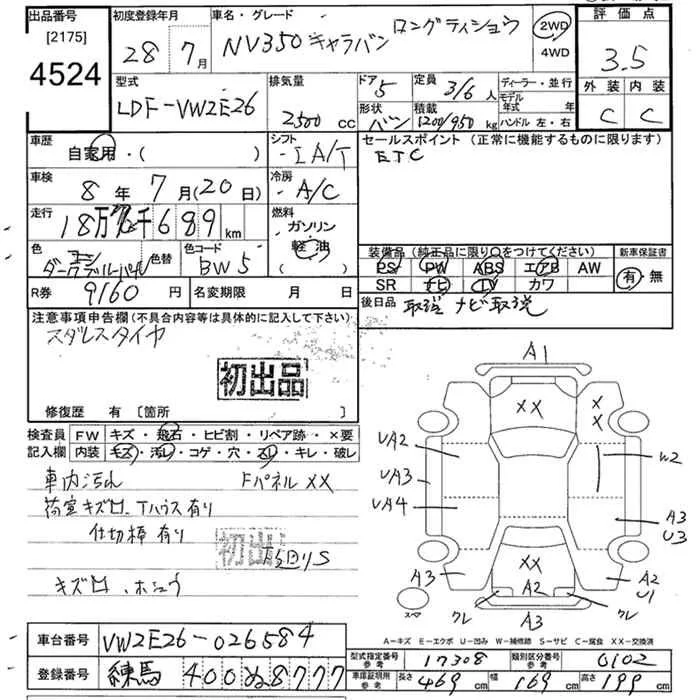 出品番号
[2175]
4524
初度登録年月
28年 7月
車名・グレード
NV350 キャラバン ロングライダー
2WD
4WD
評価点
3.5
外装 内装
C C
型式
LDF-VW2E26
排気量
2500 cc
ドア 5
形状 バン
定員 3/6 人
積載 1200/950 kg
ディーラー・並行
モデル年式 年
ハンドル 左・右
車歴
自家用・( )
シフト
IA/T
セールスポイント (正常に機能するものに限ります)
ETC
車検
8年 7月 (20日)
冷房
A/C
走行
18万 千689 km
燃料
ガソリン
軽油
( )
色
色替
色コード
BW5
装備品 (純正品に限り○をつけてください)
PS PW ABS エアB AW
SR ナビ TV カワ
新車保証書
有・無
R券 9160円
名変期限 月 日
後日品 取説 ナビ取説
注意事項申告欄 (不具合内容等は具体的に記入して下さい)
スタレスタイヤ
初出品
修復歴 有 [箇所 ]
検査員記入欄
FW キズ・飛石・ヒビ割・リペア跡・×要
内装 キズ・汚レ・コゲ・穴・スレ・キレ・破レ
車内汚れ Fパネル XX
荷室キズ凹、Tハウス有り
仕切棒有り
初出
キズ凹、ホシュウ
A1
XX
X
X
UA2
UA3
UA4
W2
A3
U3
XX
A3
A2
A2
U1
クレ
A3
クレ
A-キズ E-エクボ U-凹み W-補修跡 S-サビ C-腐食 XX-交換済
車台番号 VW2E26-026584
登録番号 練馬 400 ぬ 8777
型式指定番号 参考 17308
類別区分番号 参考 0102
車庫証明用 参考
長さ 469 cm 幅 169 cm 高さ 199 cm